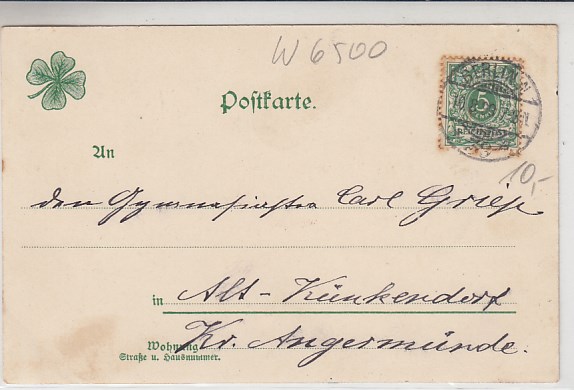 W 6500
BERLIN.W
5
REICHSPOST
Postkarte.
10,-
An
den Gymnasiasten Carl Griep
in Alt-Künkendorf
Kr. Angermünde.
Wohnung
Straße u. Hausnummer.